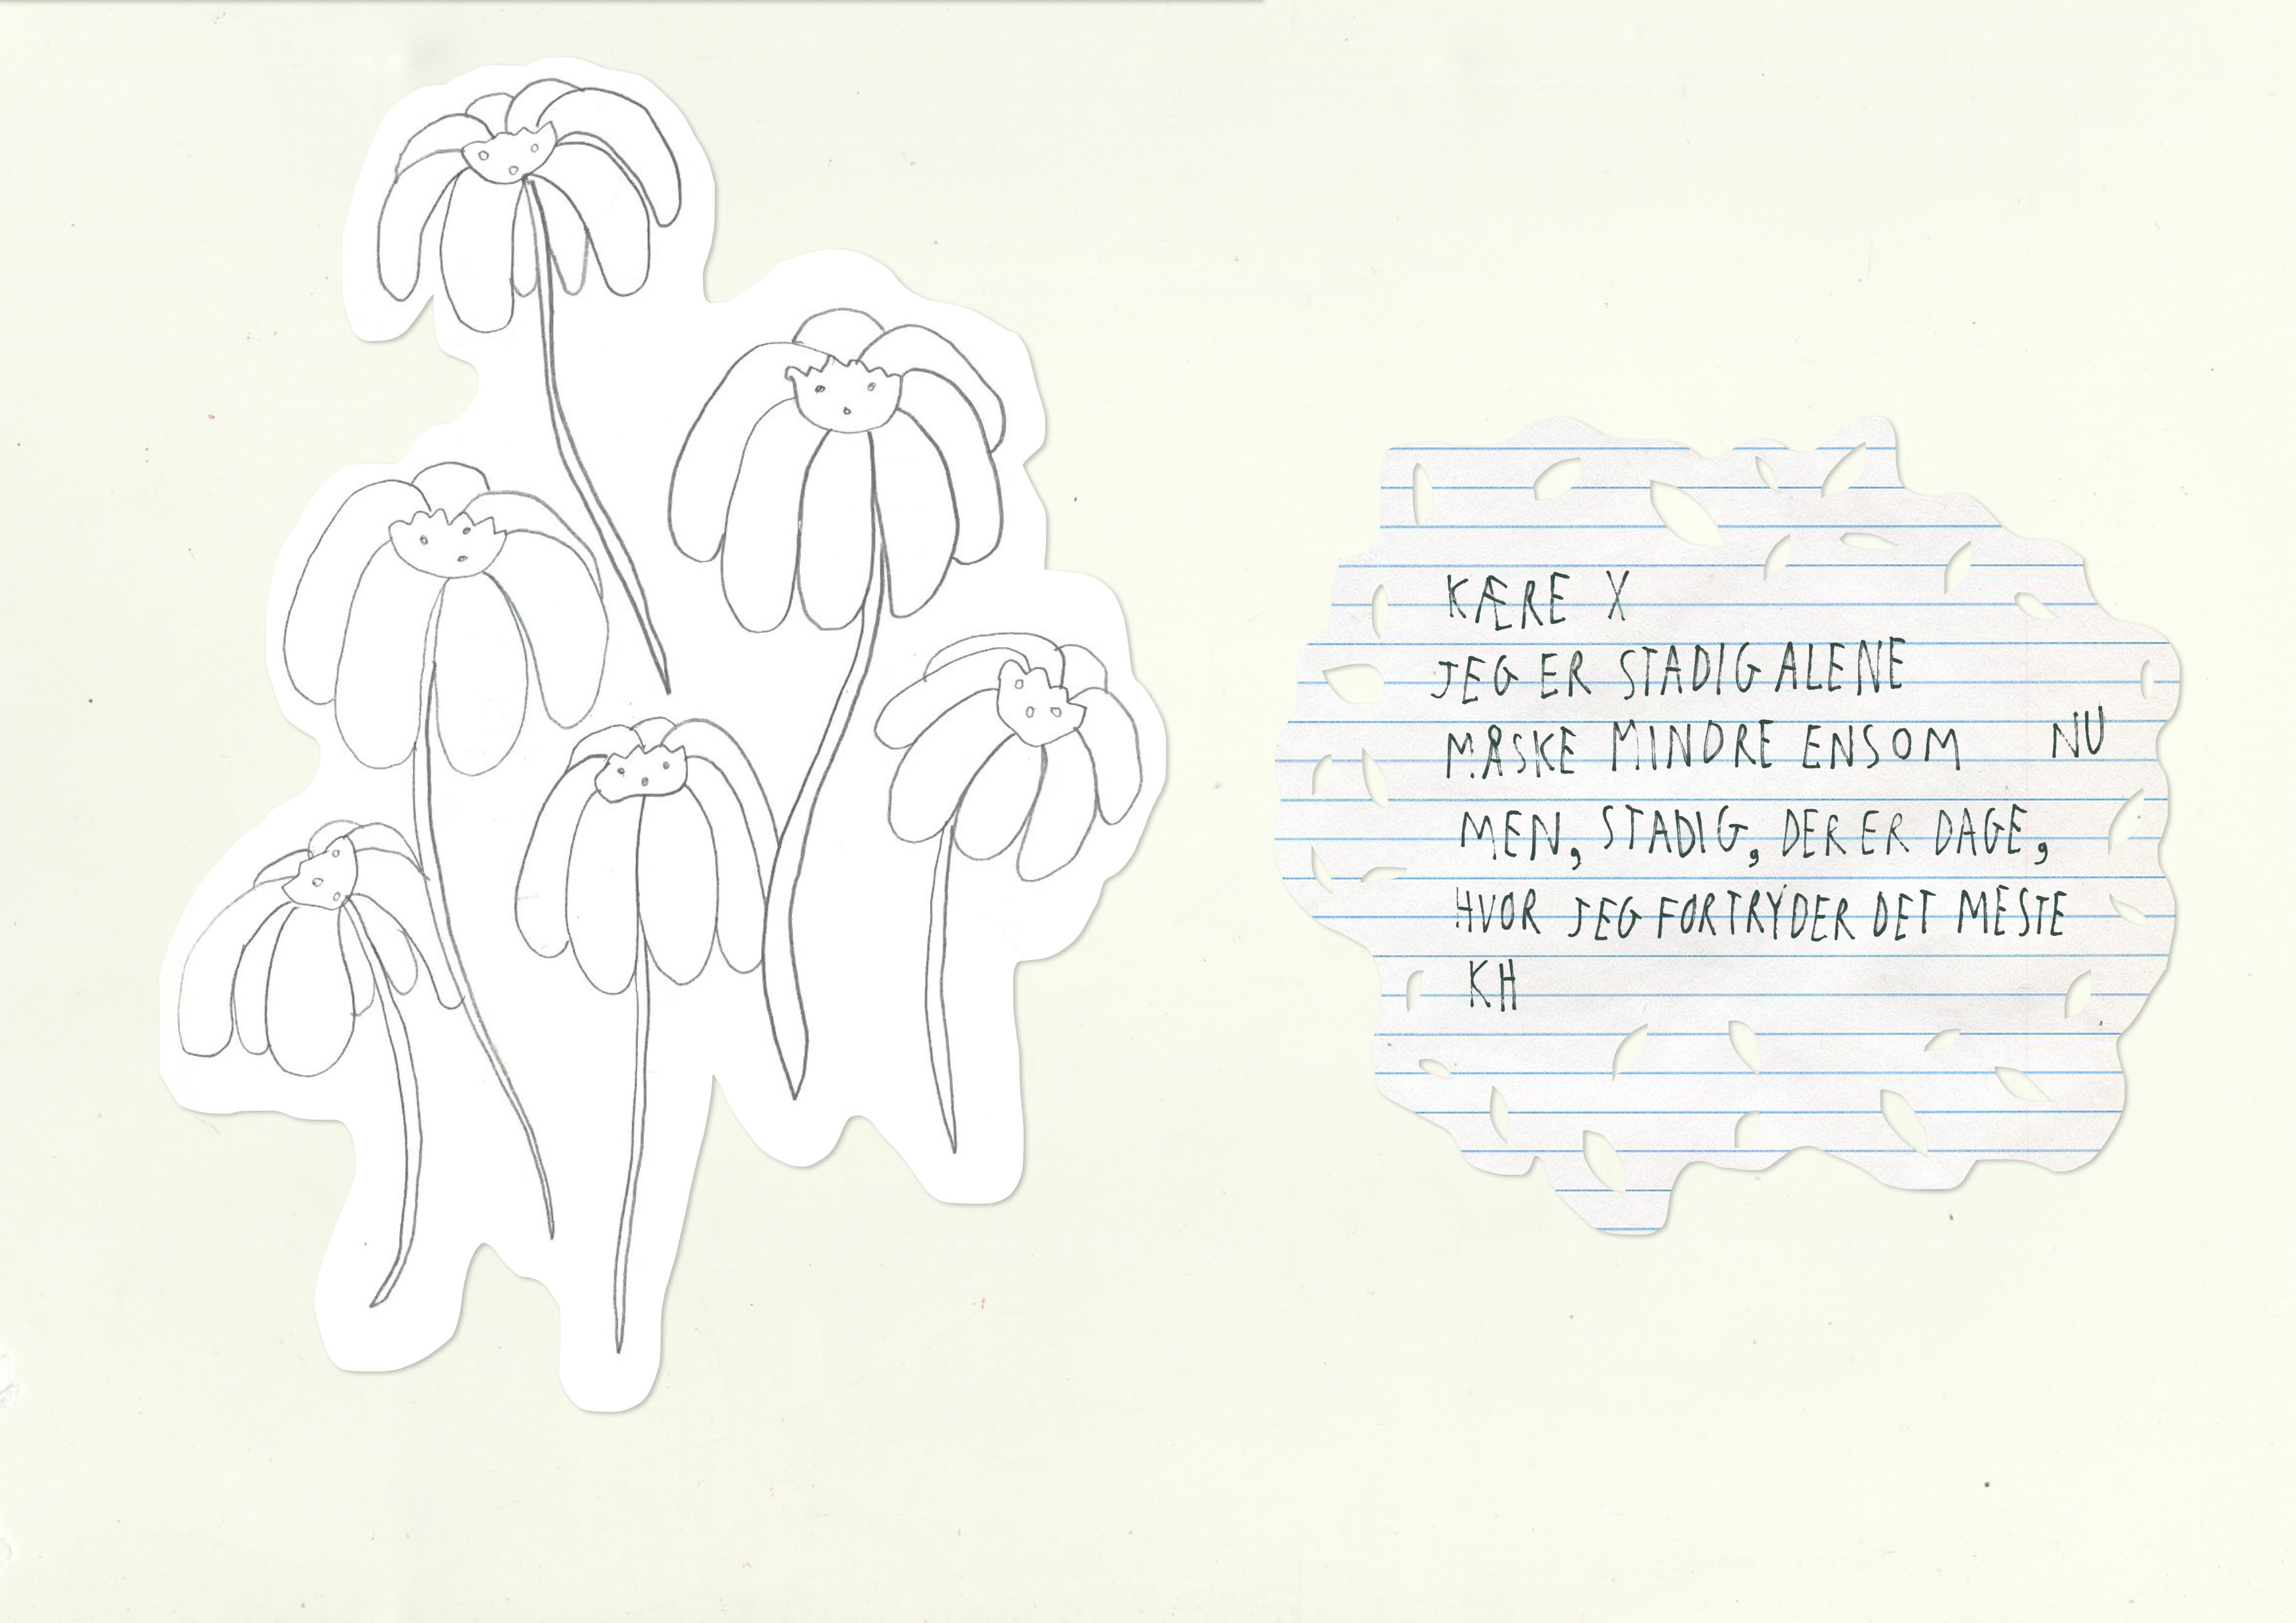 KÆRE X
JEG ER STADIG ALENE
MÅSKE MINDRE ENSOM NU
MEN, STADIG, DER ER DAGE,
HVOR JEG FORTRYDER DET MESTE
KH